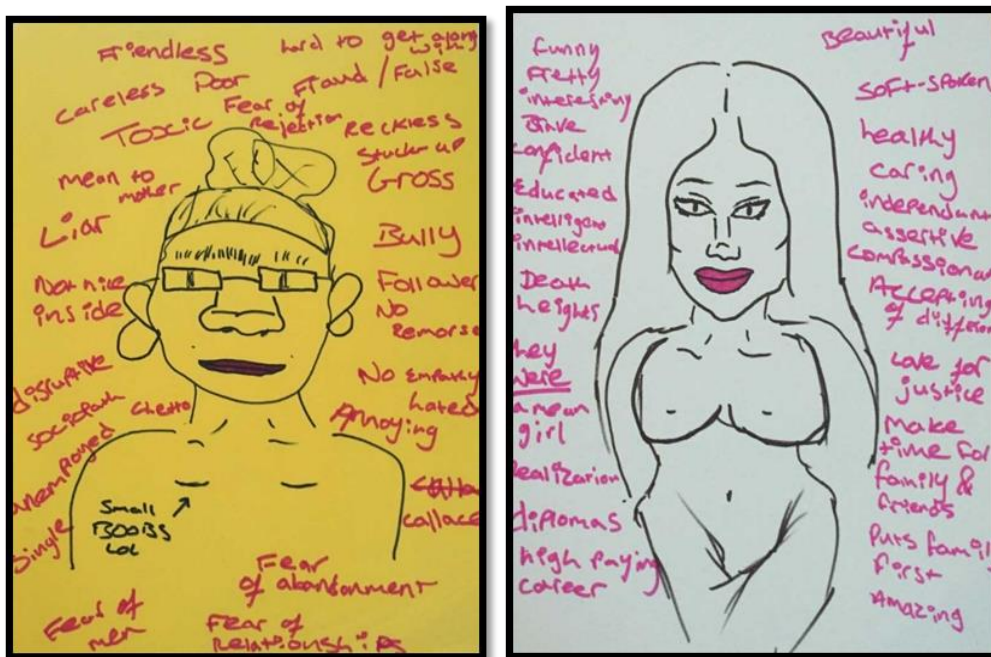 Friendless
hard to get along
with
Careless
Poor
Fraud / False
Toxic
Fear of
Rejection
Reckless
Stuck up
Gross
mean to
mother
Liar
Bully
Not nice
inside
Follower
No
Remorse
disruptive
sociopath
Ghetto
No Empathy
hated
Annoying
unemployed
Single
Small
BOOBS
LOL
Fear
of abandonment
Fear of
men
Fear of
Relationships
Funny
Pretty
interesting
Brave
Confident
Educated
intelligent
intellectual
Death
heights
they
were
a mean
girl
Realization
diplomas
high paying
career
Beautiful
soft-spoken
healthy
caring
independant
assertive
compassionat
Accepting
of differen
Love for
justice
make
time for
family &
friends
Puts family
first
Amazing